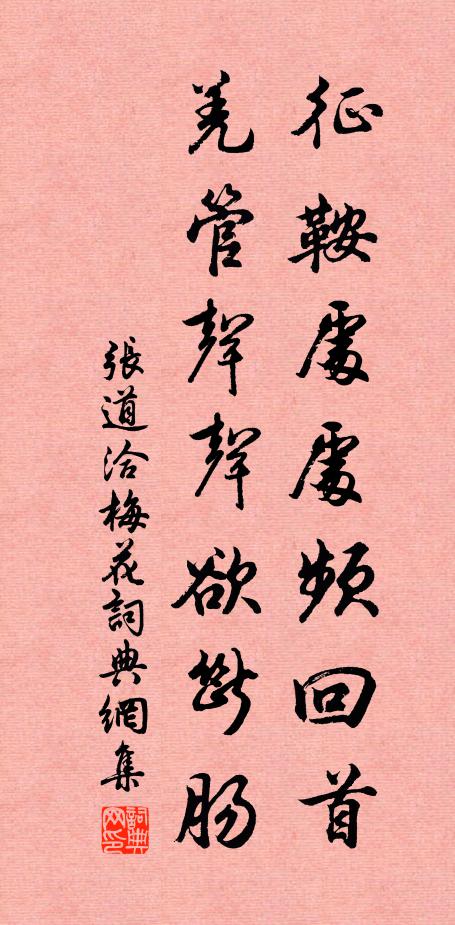 征鞍處處頻回首
羌管聲聲欲斷腸
張道洽梅花詞典網集
詞典网印